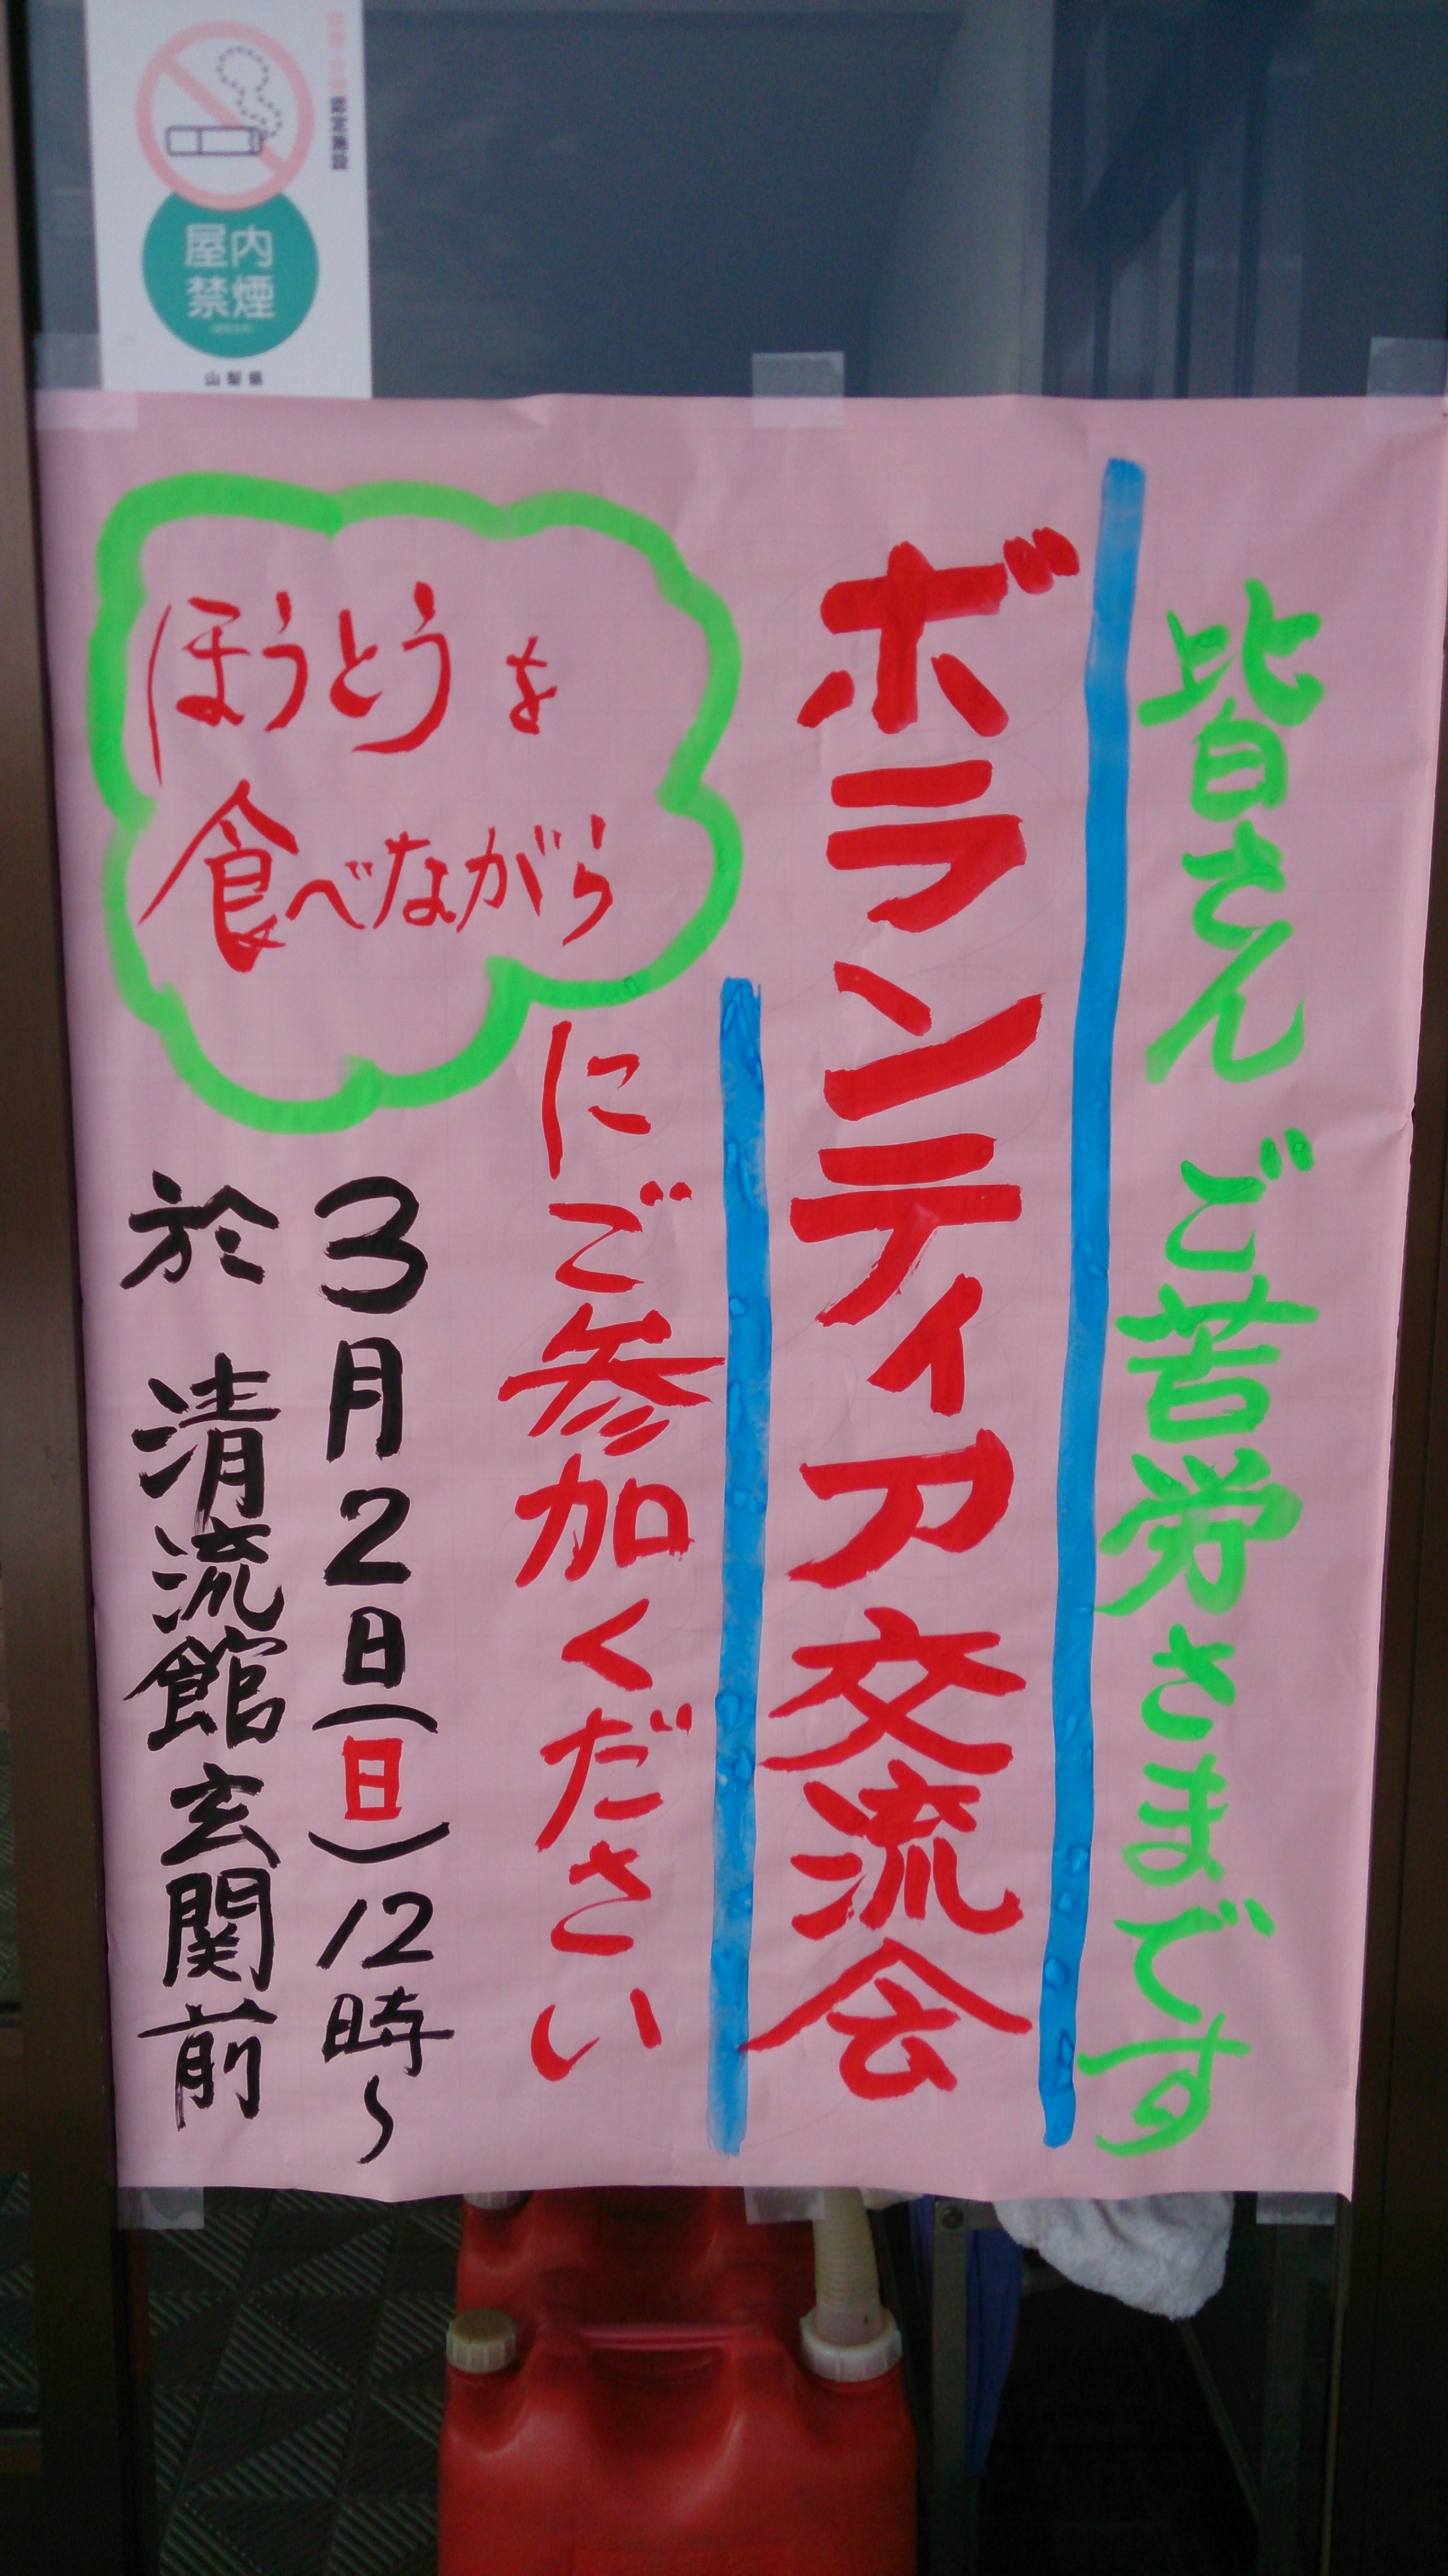 認定施設
屋内
禁煙
山梨県
皆さん ご苦労さまです
ボランティア交流会
にご参加ください
ほうとうを
食べながら
3月2日(日)12時～
於 清流館玄関前